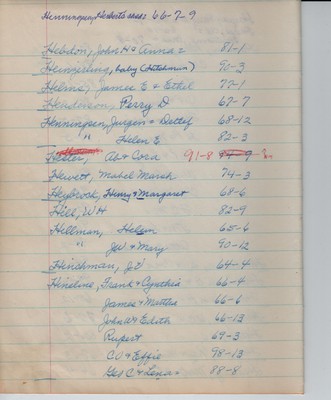 Henningsen, Herbert & Inez 66-7-9
Hebdon, John H & Anna 81-1
Hemmerling, baby (Hitchman) 90-3
Helms, James E & Ethel 77-1
Henderson, Perry D 67-7
Henningsen, Jurgen & Detlef 68-12
" Helen E 82-3
Hester, Ab & Cora 91-8 94-9
Hewett, Mabel Marsh 74-3
Heybrook, Henry & Margaret 68-6
Hill, W H 82-9
Hillman, Helen 65-6
" JW & Mary 90-12
Hinchman, JV 64-4
Hineline, Frank & Cynthia 66-4
James & Martha 66-6
John & Edith 66-13
Rupert 69-3
CO & Effie 98-13
Geo C & Lena 88-8